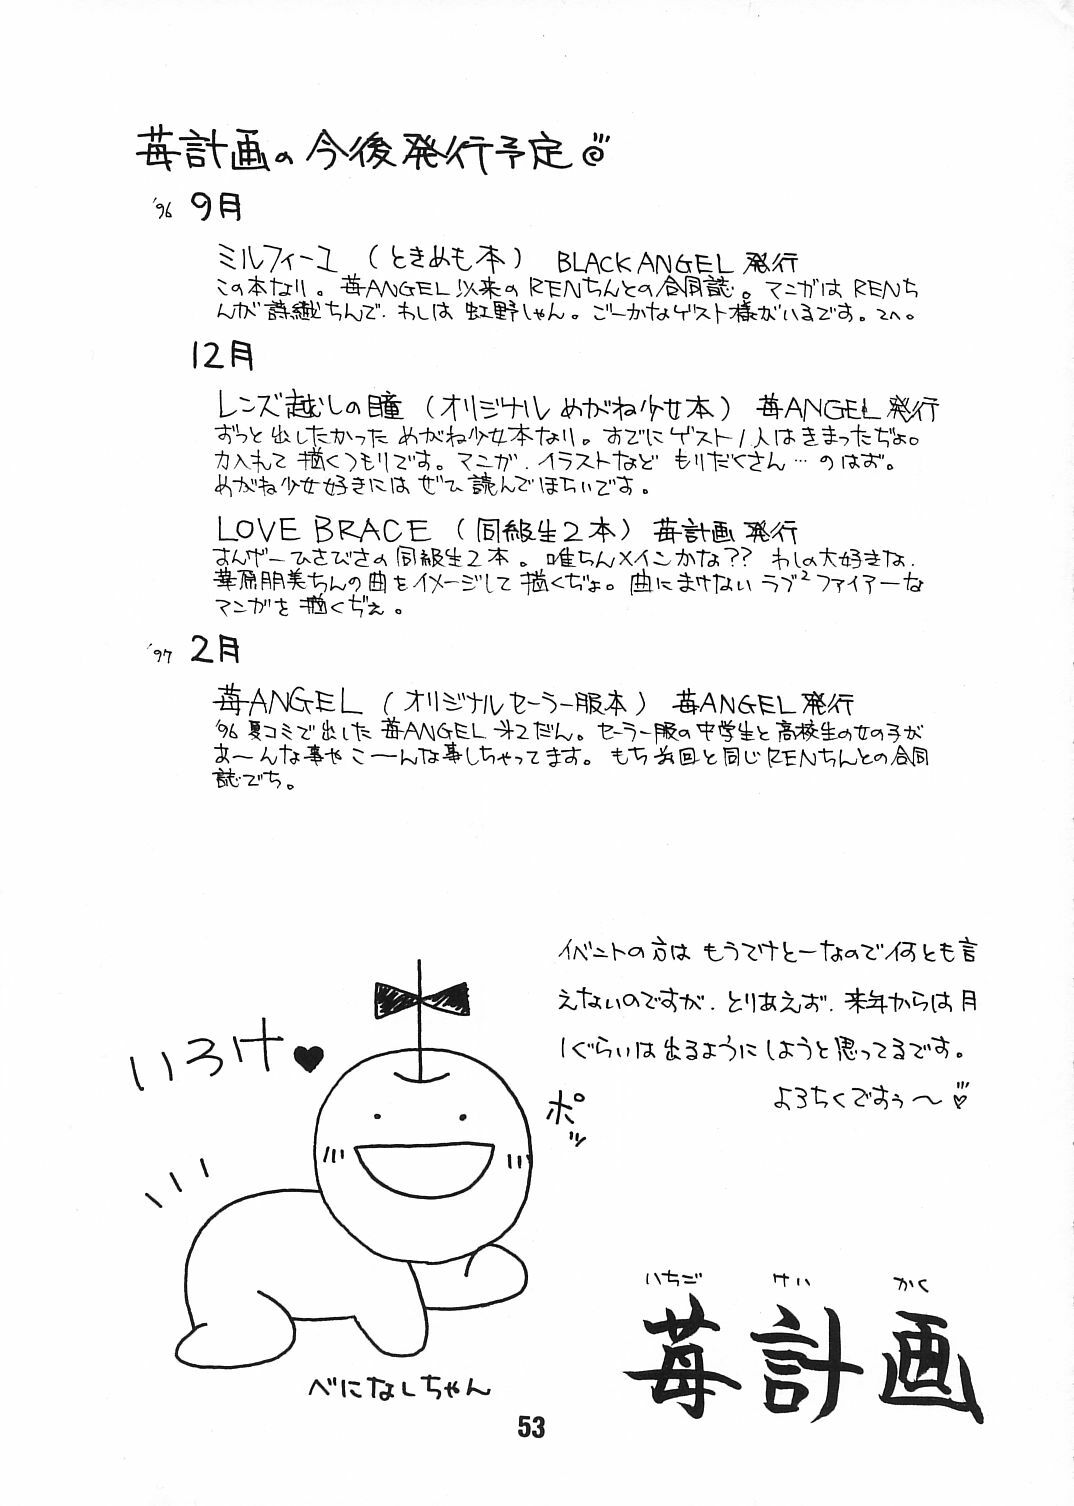 苺計画の今後発行予定
'96 9月
ミルフィーユ (ときめも本) BLACK ANGEL 発行
この本なり。苺ANGEL以来のRENちんとの合同誌。マンガはRENち
んが詩織ちんで、わしは虹野しゃん。ごーかなゲスト様がいるです。てへ。
12月
レンズ越しの瞳 (オリジナルめがね少女本) 苺ANGEL発行
ずっと出したかっためがね少女本なり。すでにゲスト1人はきまったぢょ。
力入れて描くつもりです。マンガ、イラストなどもりだくさん…のはず。
めがね少女好きにはぜひ読んでほちいです。
LOVE BRACE (同級生2本) 苺計画発行
すんげーひさびさの同級生2本。唯ちんメインかな?? わしの大好きな、
華原朋美ちんの曲をイメージして描くぢょ。曲にまけないラブ²ファイアーな
マンガを描くぢぇ。
'97 2月
苺ANGEL (オリジナルセーラー服本) 苺ANGEL発行
'96夏コミで出した苺ANGEL 才2だん。セーラー服の中学生と高校生の女の子が
あ〜んな事やこーんな事しちゃってます。もち前回と同じRENちんとの合同
誌でち。
イベントの方はもうてけとーなので何とも言
えないのですが、とりあえず、来年からは月
1ぐらいは出るようにしようと思ってるです。
よろちくですぅ〜
いろけ♥
ポッ
べになしちゃん
いちご けい かく
苺計画
53